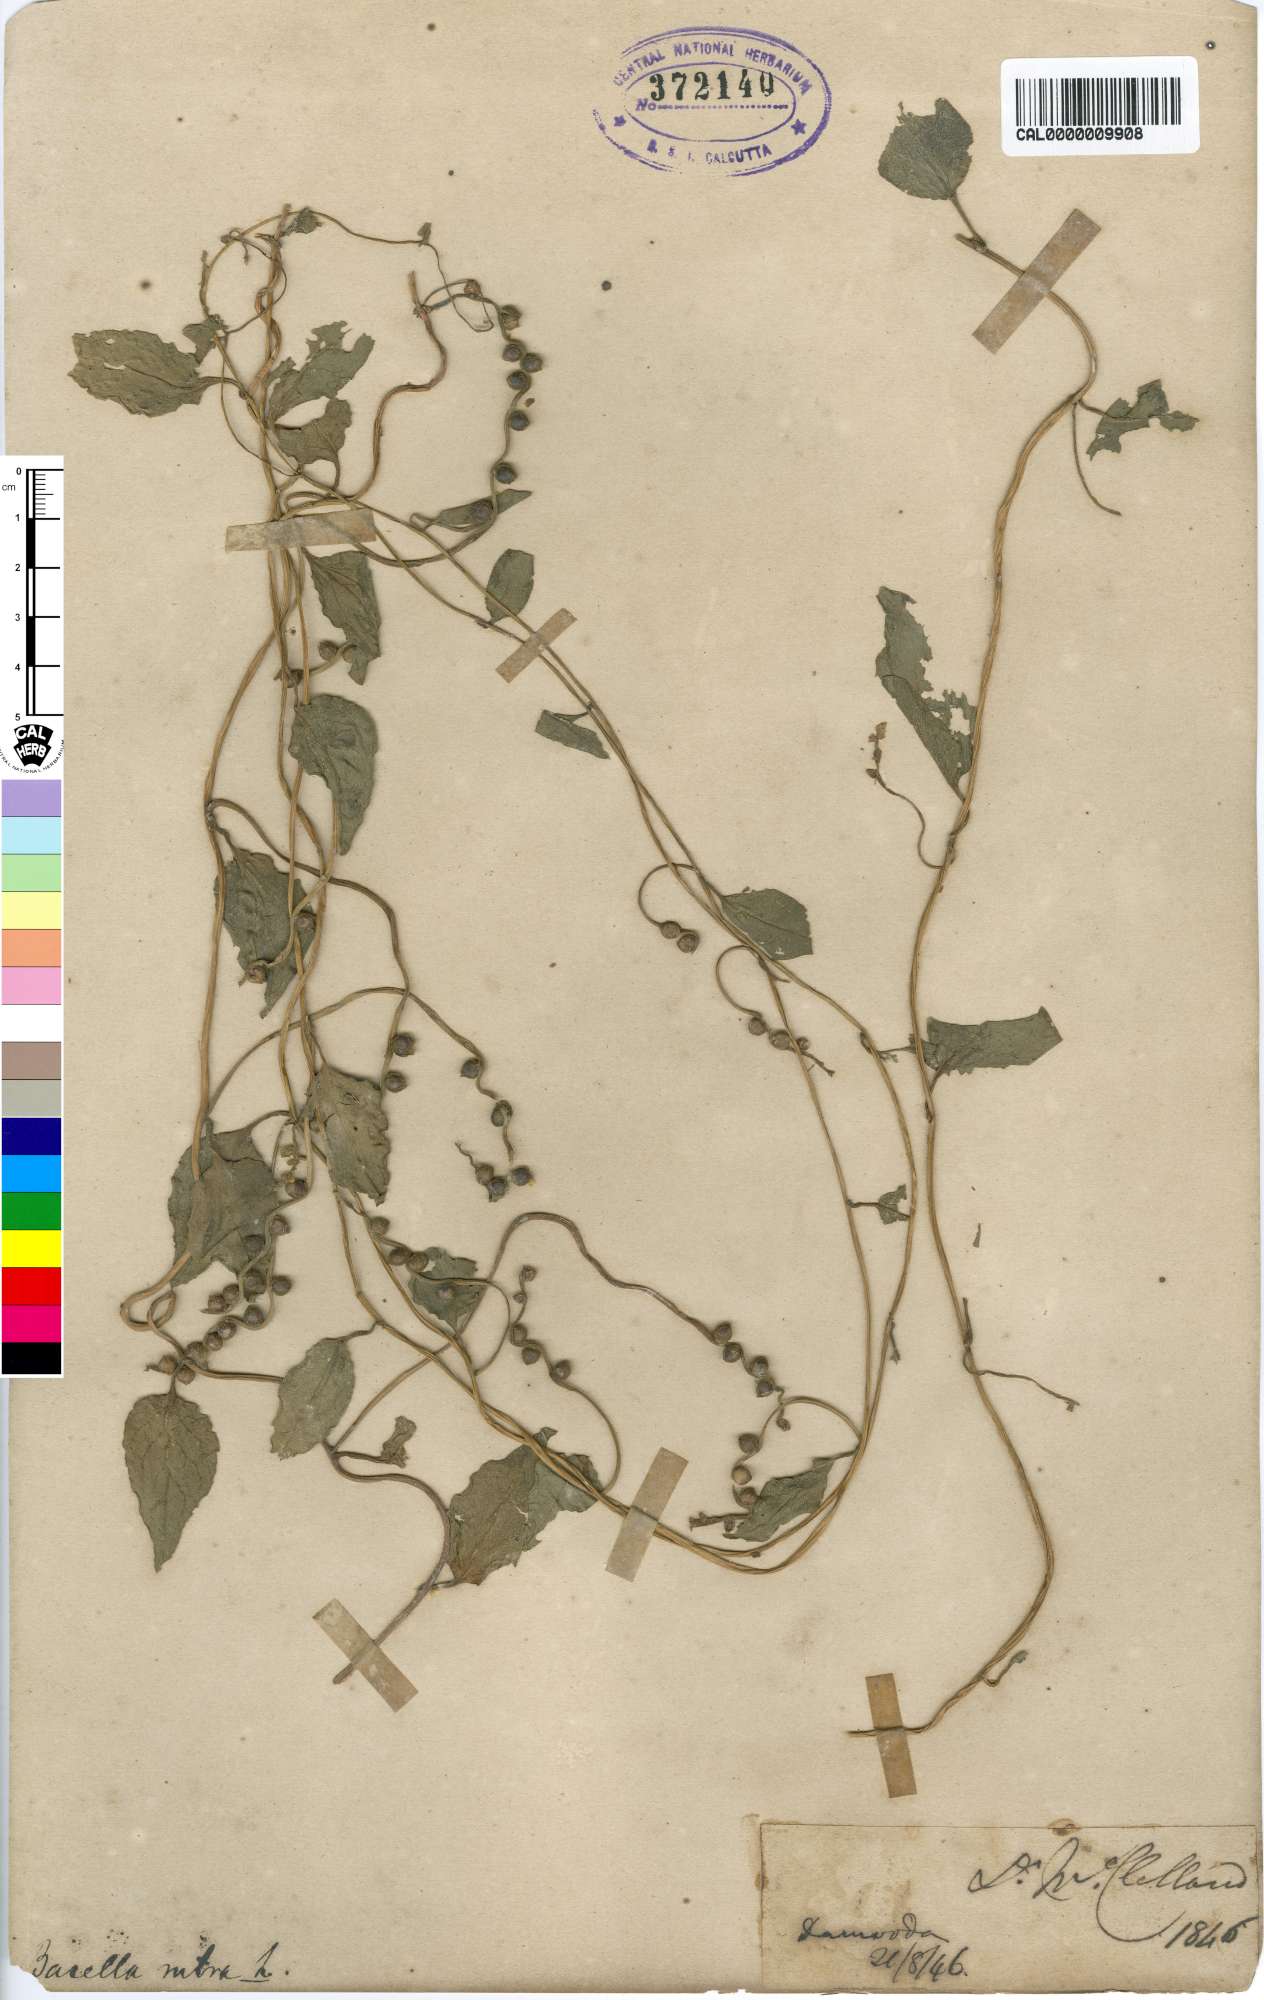 CENTRAL NATIONAL HERBARIUM
No 372140
B. S. I. CALCUTTA
CAL0000009908
0
cm
1
2
3
4
5
CAL
HERB
CENTRAL NATIONAL HERBARIUM
Dr. Mc.Clelland
1846
Damooda
21/8/46.
Basella rubra L.